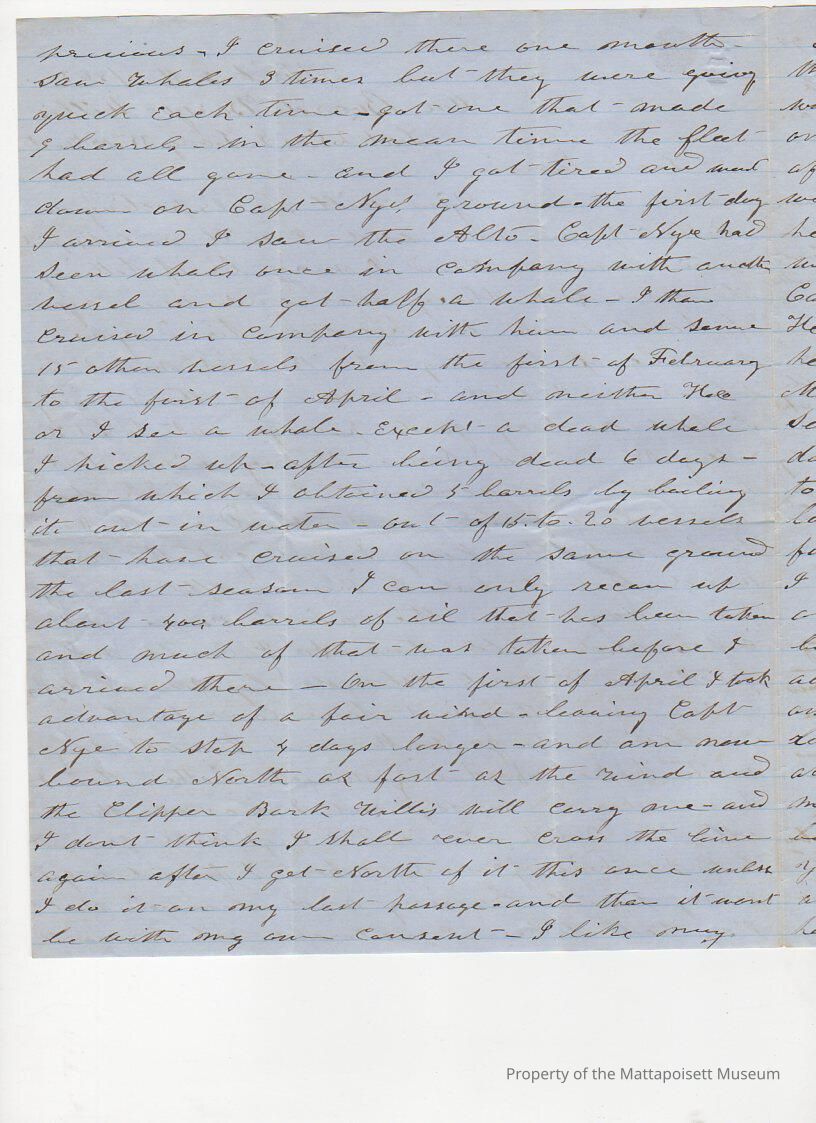 precious - I cruised there one month -
Saw Whales 3 times but they were going
quick Each time - got one that made
9 barrels - in the mean time the fleet
had all gone - and I got tired and went
down on Capt Nye's ground - the first day
I arrived I saw the Alto - Capt Nye had
seen whales once in company with another
vessel and got half a whale - I then
cruised in company with him and some
15 other vessels from the first of February
to the first of April - and neither Hee
or I see a whale - Except a dead whale
I picked up - after being dead 6 days -
from which I obtained 5 barrels by boiling
it out in water - out of 15 to 20 vessels
that have cruised on the same ground
the last season I can only recon up
about 400 barrels of oil that has been taken
and much of that was taken before I
arrived there - On the first of April I took
advantage of a fair wind - leaving Capt
Nye to stop 4 days longer - and am now
bound North as fast as the wind and
the Clipper Bark Willis will carry me - and
I dont think I shall ever cross the line
again after I get North of it this once unless
I do it on my last passage - and than it wont
be with my own consent - I like
Property of the Mattapoisett Museum